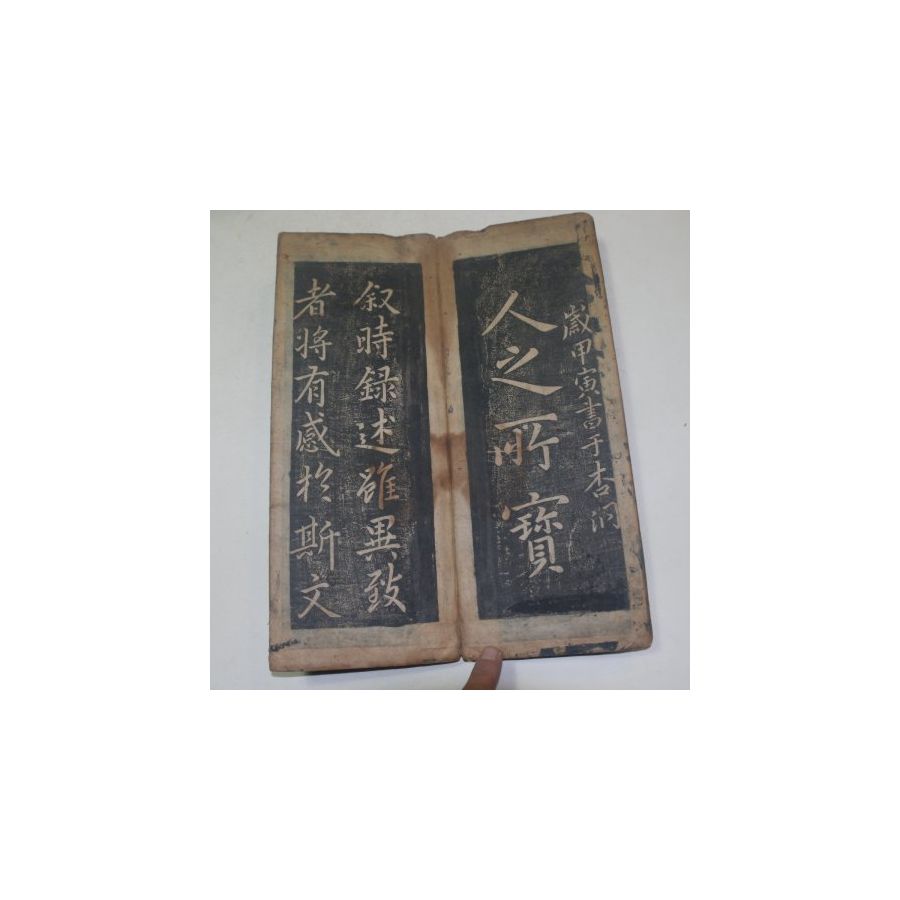 歲甲寅書于杏洞
人之所寶
叙時錄述雖異致
者將有感於斯文